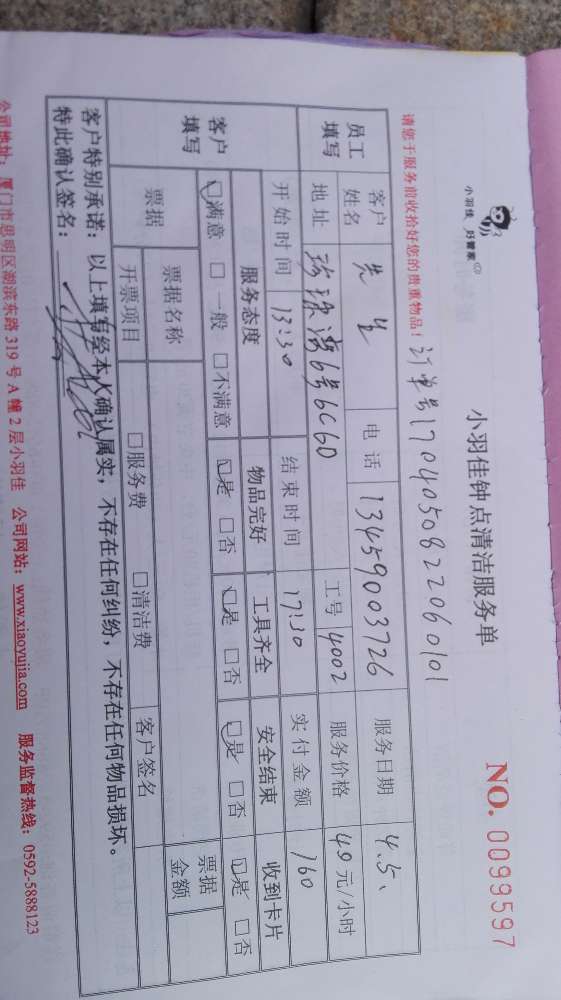 小羽佳 好管家
小羽佳钟点清洁服务单
NO. 0099597
请您于服务前收拾好您的贵重物品！ 订单号1704050822060101
员工填写 客户姓名 先生 电话 13459003726 服务日期 4.5、
地址 珍珠湾6号6C6D 工号 4002 服务价格 40元/小时
开始时间 13:30 结束时间 17:30 实付金额 160
客户填写 服务态度 物品完好 工具齐全 安全结束 收到卡片
☑满意 □一般 □不满意 ☑是 □否 ☑是 □否 ☑是 □否 ☑是 □否
票据 票据名称 票据金额
开票项目 □服务费 □清洁费 客户签名
客户特别承诺：以上填写经本人确认属实，不存在任何纠纷，不存在任何物品损坏。
特此确认签名：
公司地址：厦门市思明区湖滨东路319号A幢2层小羽佳 公司网站：www.xiaoyujia.com 服务监督热线：0592-5888123